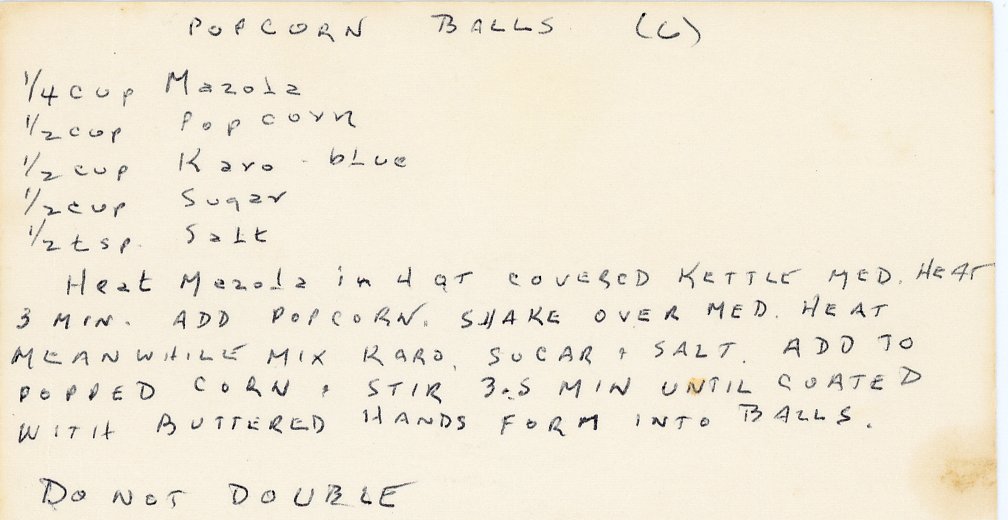 POPCORN BALLS (C)
1/4 cup Mazola
1/2 cup Popcorn
1/2 cup Karo - blue
1/2 cup Sugar
1/2 tsp. Salt
Heat Mazola in 4 QT COVERED KETTLE MED. HEAT
3 MIN. ADD POPCORN. SHAKE OVER MED. HEAT
MEANWHILE MIX KARO, SUGAR & SALT. ADD TO
POPPED CORN & STIR 3-5 MIN UNTIL COATED
WITH BUTTERED HANDS FORM INTO BALLS.
DO NOT DOUBLE